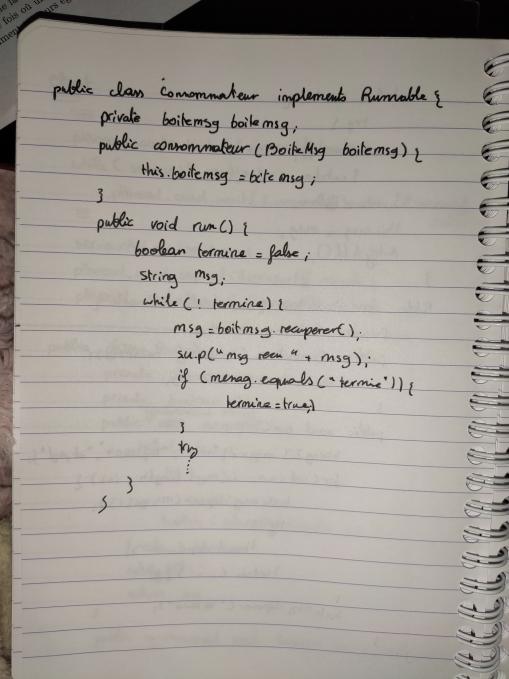 fois où
public class Consommateur implements Runnable {
private boitemsg boitemsg;
public consommateur (BoiteMsg boitemsg) {
this.boitemsg = boitemsg;
}
public void run() {
boolean termine = false;
string msg;
while (! termine) {
msg = boitmsg.recuperer();
su.p("msg recu" + msg);
if (menag.equals("termie")) {
termine = true;}
}
try
...
}
}